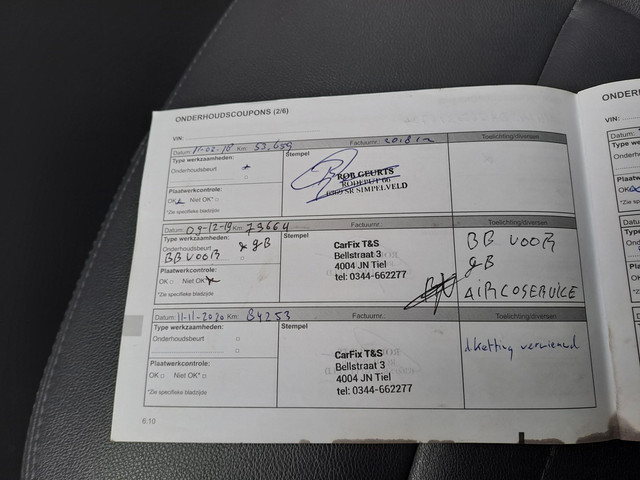 ONDERHOUDSCOUPONS (2/6)
VIN:
Datum: 11-02-18 Km: 53,659 Factuurnr.: Toelichting/diversen
Type werkzaamheden: Stempel
Onderhoudsbeurt
ROB GEURTS
RODEPUT 66
SR SIMPELVELD
Plaatwerkcontrole:
OK Niet OK*
*Zie specifieke bladzijde
Datum: 09-12-19 Km: 73664 Factuurnr.: Toelichting/diversen
Type werkzaamheden: Stempel
Onderhoudsbeurt x gB
BB VOOR
CarFix T&S
Bellstraat 3
4004 JN Tiel
tel: 0344-662277
BB VOOR
gB
AIRCOSERVICE
Plaatwerkcontrole:
OK Niet OK*
*Zie specifieke bladzijde
Datum: 11-11-2020 Km: 84253 Factuurnr.: Toelichting/diversen
Type werkzaamheden: Stempel
Onderhoudsbeurt
CarFix T&S
Bellstraat 3
4004 JN Tiel
tel: 0344-662277
Plaatwerkcontrole:
OK Niet OK*
*Zie specifieke bladzijde
6.10
ONDER
VIN:
Datum:
Type we
Onderho
Plaatwe
OK
*Zie